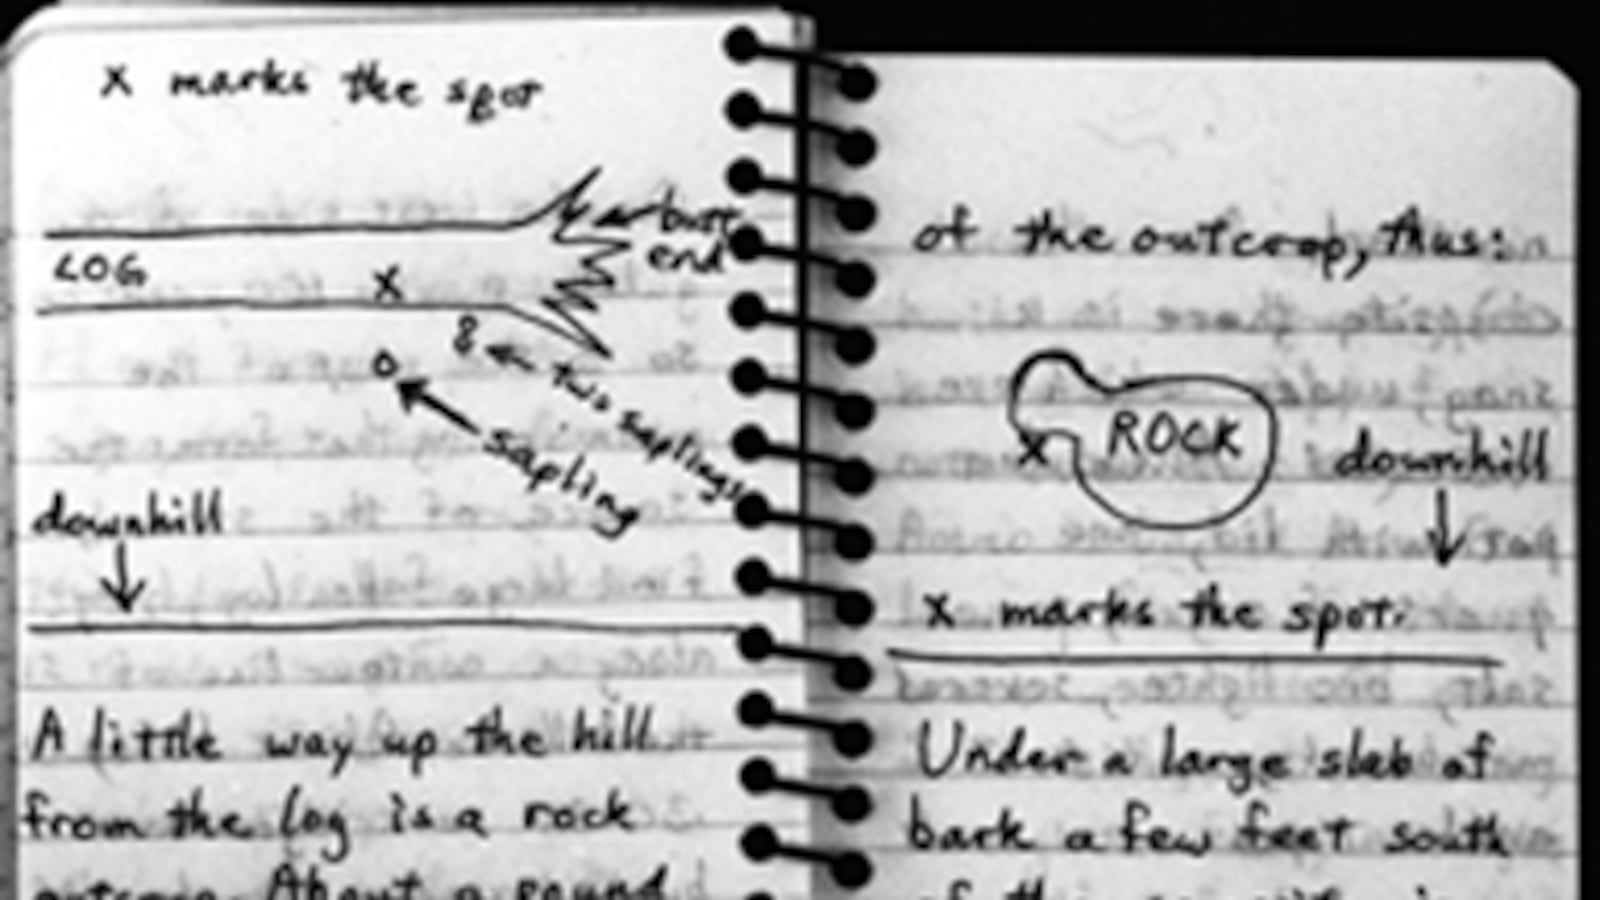 x marks the spot
butt
end
LOG
x
two saplings
sapling
downhill
A little way up the hill
from the log is a rock
outcrop. About a pound
of the outcrop, thus:
ROCK
x
downhill
x marks the spot.
Under a large slab of
bark a few feet south
of the